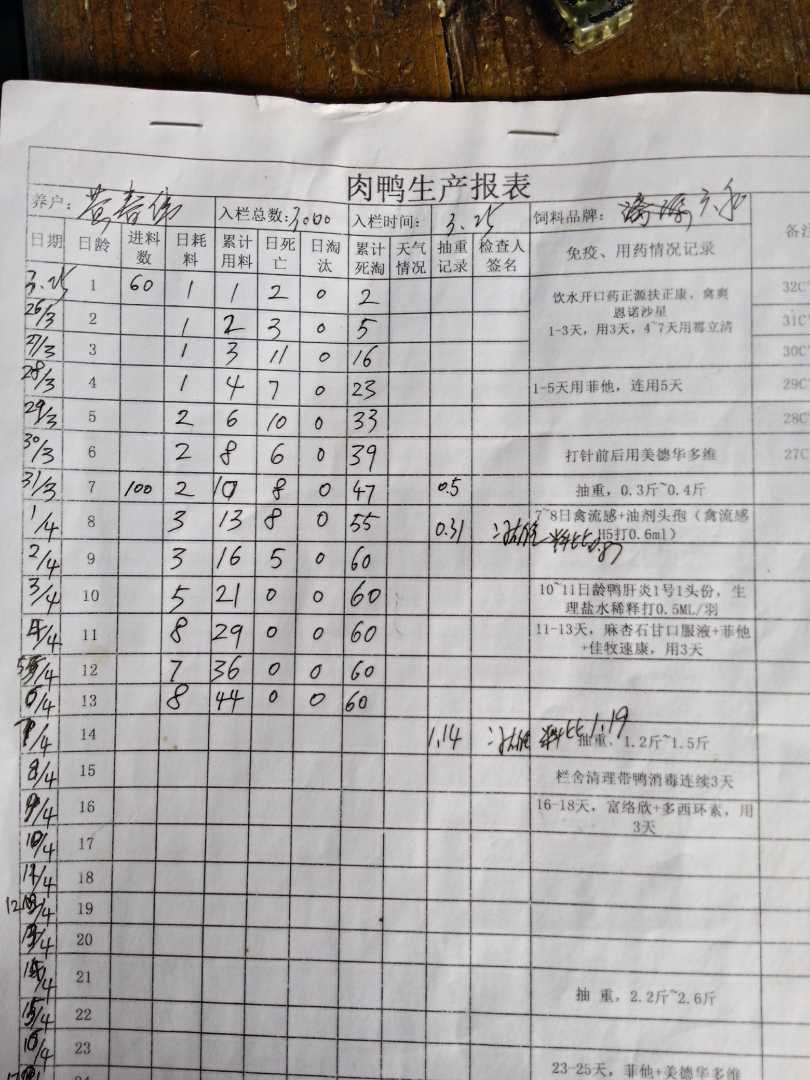 肉鸭生产报表
养户: 入栏总数: 3000 入栏时间: 3.25 饲料品牌:
日期 日龄 进料数 日耗料 累计用料 日死亡 日淘汰 累计死淘 天气情况 抽重记录 检查人签名 免疫、用药情况记录 备注
3.25 1 60 1 1 2 0 2 饮水开口药正源扶正康，禽爽 32C
恩诺沙星
26/3 2 1 2 3 0 5 1-3天，用3天，4~7天用霉立清 31C
27/3 3 1 3 11 0 16 30C
28/3 4 1 4 7 0 23 1-5天用菲他，连用5天 29C
29/3 5 2 6 10 0 33 28C
30/3 6 2 8 6 0 39 打针前后用美德华多维 27C
31/3 7 100 2 10 8 0 47 0.5 抽重，0.3斤~0.4斤
1/4 8 3 13 8 0 55 0.31 料比0.87 7~8日禽流感+油剂头孢（禽流感
H5打0.6ml）
2/4 9 3 16 5 0 60
3/4 10 5 21 0 0 60 10~11日龄鸭肝炎1号1头份，生
理盐水稀释打0.5ML/羽
4/4 11 8 29 0 0 60 11-13天，麻杏石甘口服液+菲他
+佳牧速康，用3天
5/4 12 7 36 0 0 60
6/4 13 8 44 0 0 60
7/4 14 1.14 料比1.19 抽重，1.2斤~1.5斤
8/4 15 栏舍清理带鸭消毒连续3天
9/4 16 16-18天，富络欣+多西环素，用
3天
10/4 17
11/4 18
12/4 19
13/4 20
14/4 21 抽 重，2.2斤~2.6斤
15/4 22
16/4 23
23-25天，菲他+美德华多维